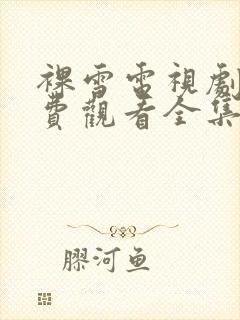 裸雪雷視劇
費觀看全集
膠河鱼